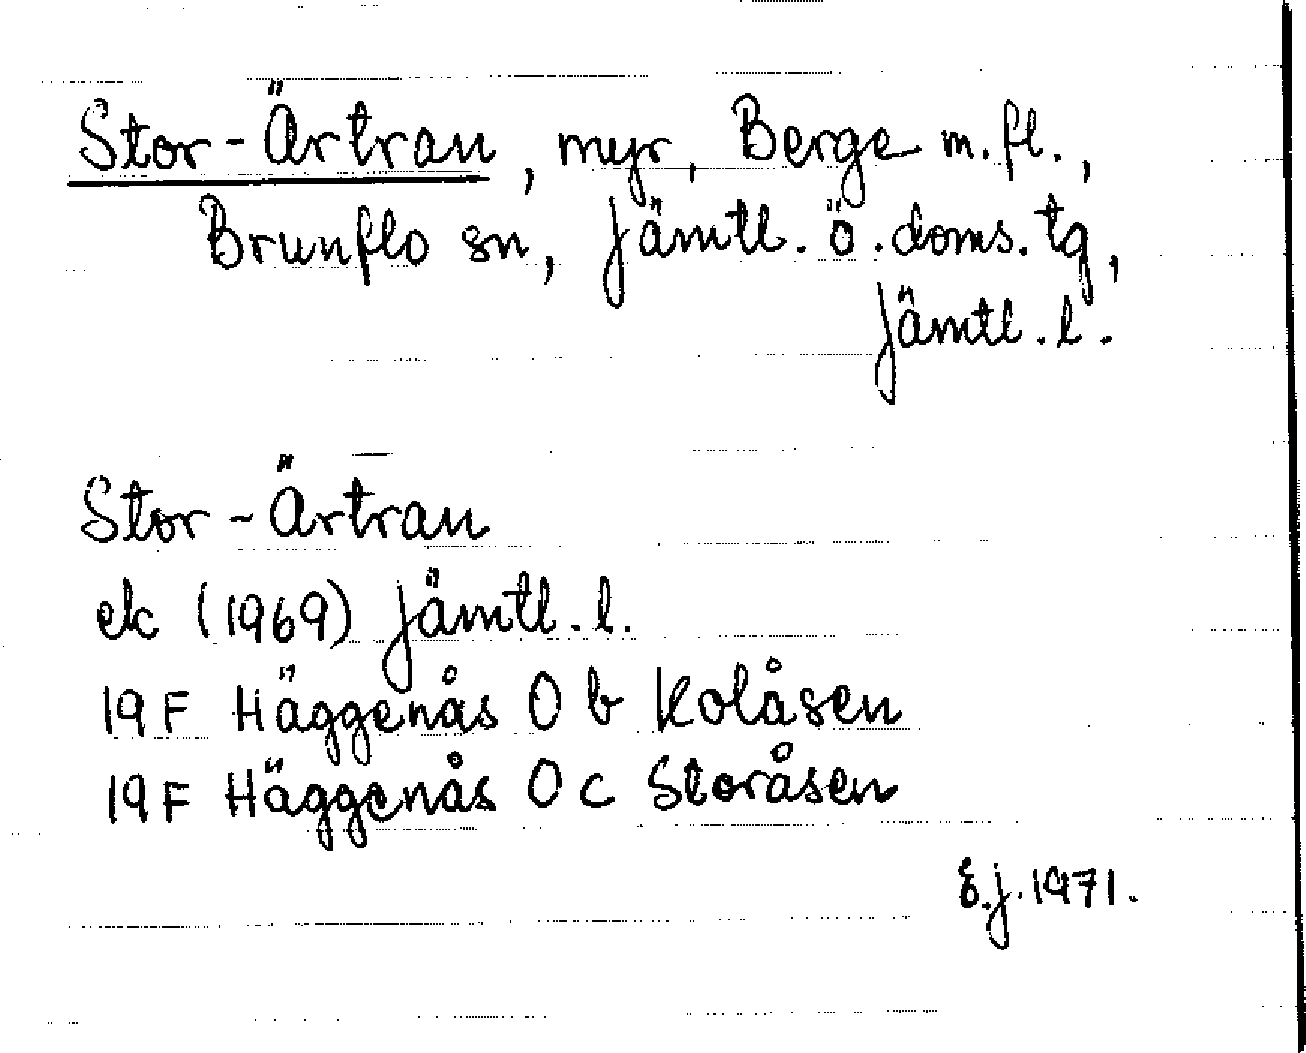 Stor-Ärtran, myr, Berge m.fl.,
Brunflo sn, Jämtl. ö. doms. tg,
Jämtl. l.
Stor-Ärtran
ek (1969) Jämtl. l.
19 F Häggenås 0 b Kolåsen
19 F Häggenås 0 c Storåsen
E.J. 1971.